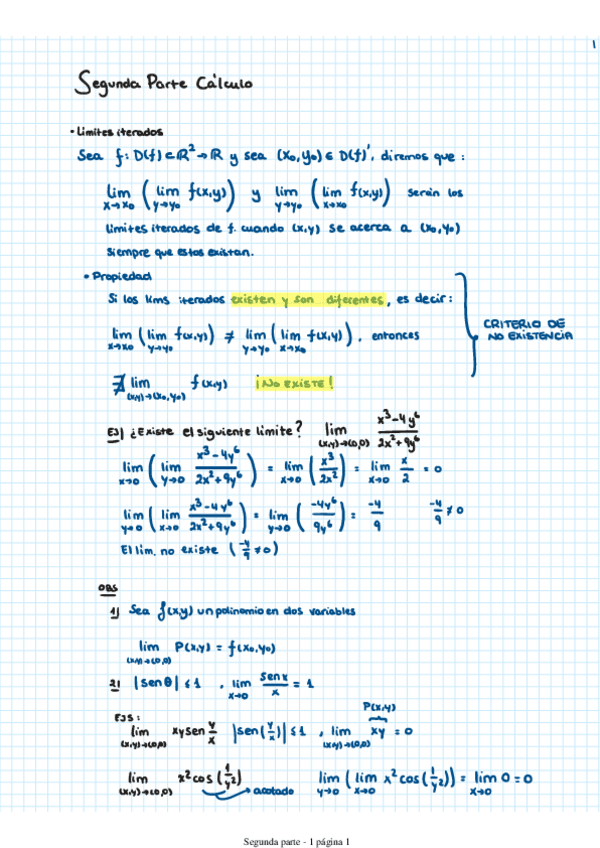 1
Segunda Parte Cálculo
• Límites iterados
Sea f: D(f) ⊂ R² → R y sea (x₀, y₀) ∈ D(f)', diremos que :
lim x→x₀ ( lim y→y₀ f(x,y) ) y lim y→y₀ ( lim x→x₀ f(x,y) ) serán los
límites iterados de f. cuando (x,y) se acerca a (x₀, y₀)
siempre que estos existan.
• Propiedad
Si los lims iterados existen y son diferentes, es decir :
lim x→x₀ ( lim y→y₀ f(x,y) ) ≠ lim y→y₀ ( lim x→x₀ f(x,y) ) , entonces
CRITERIO DE
NO EXISTENCIA
∄ lim (x,y)→(x₀,y₀) f(x,y) ¡No EXISTE!
EJ) ¿Existe el siguiente límite? lim (x,y)→(0,0) (x³-4y⁶)/(2x²+9y⁶)
lim x→0 ( lim y→0 (x³-4y⁶)/(2x²+9y⁶) ) = lim x→0 ( x³/2x² ) = lim x→0 x/2 = 0
lim y→0 ( lim x→0 (x³-4y⁶)/(2x²+9y⁶) ) = lim y→0 ( -4y⁶/9y⁶ ) = -4/9 -4/9 ≠ 0
El lim. no existe ( -4/9 ≠ 0 )
OBS
1) Sea f(x,y) un polinomio en dos variables
lim (x,y)→(0,0) P(x,y) = f(x₀,y₀)
2) |sen θ| ≤ 1 , lim x→0 sen x/x = 1
EJS :
lim (x,y)→(0,0) xy sen y/x |sen(y/x)| ≤ 1 , lim (x,y)→(0,0) xy = 0
P(x,y)
lim (x,y)→(0,0) x² cos (1/y²) → acotado lim y→0 ( lim x→0 x² cos (1/y²) ) = lim x→0 0 = 0
Segunda parte - 1 página 1